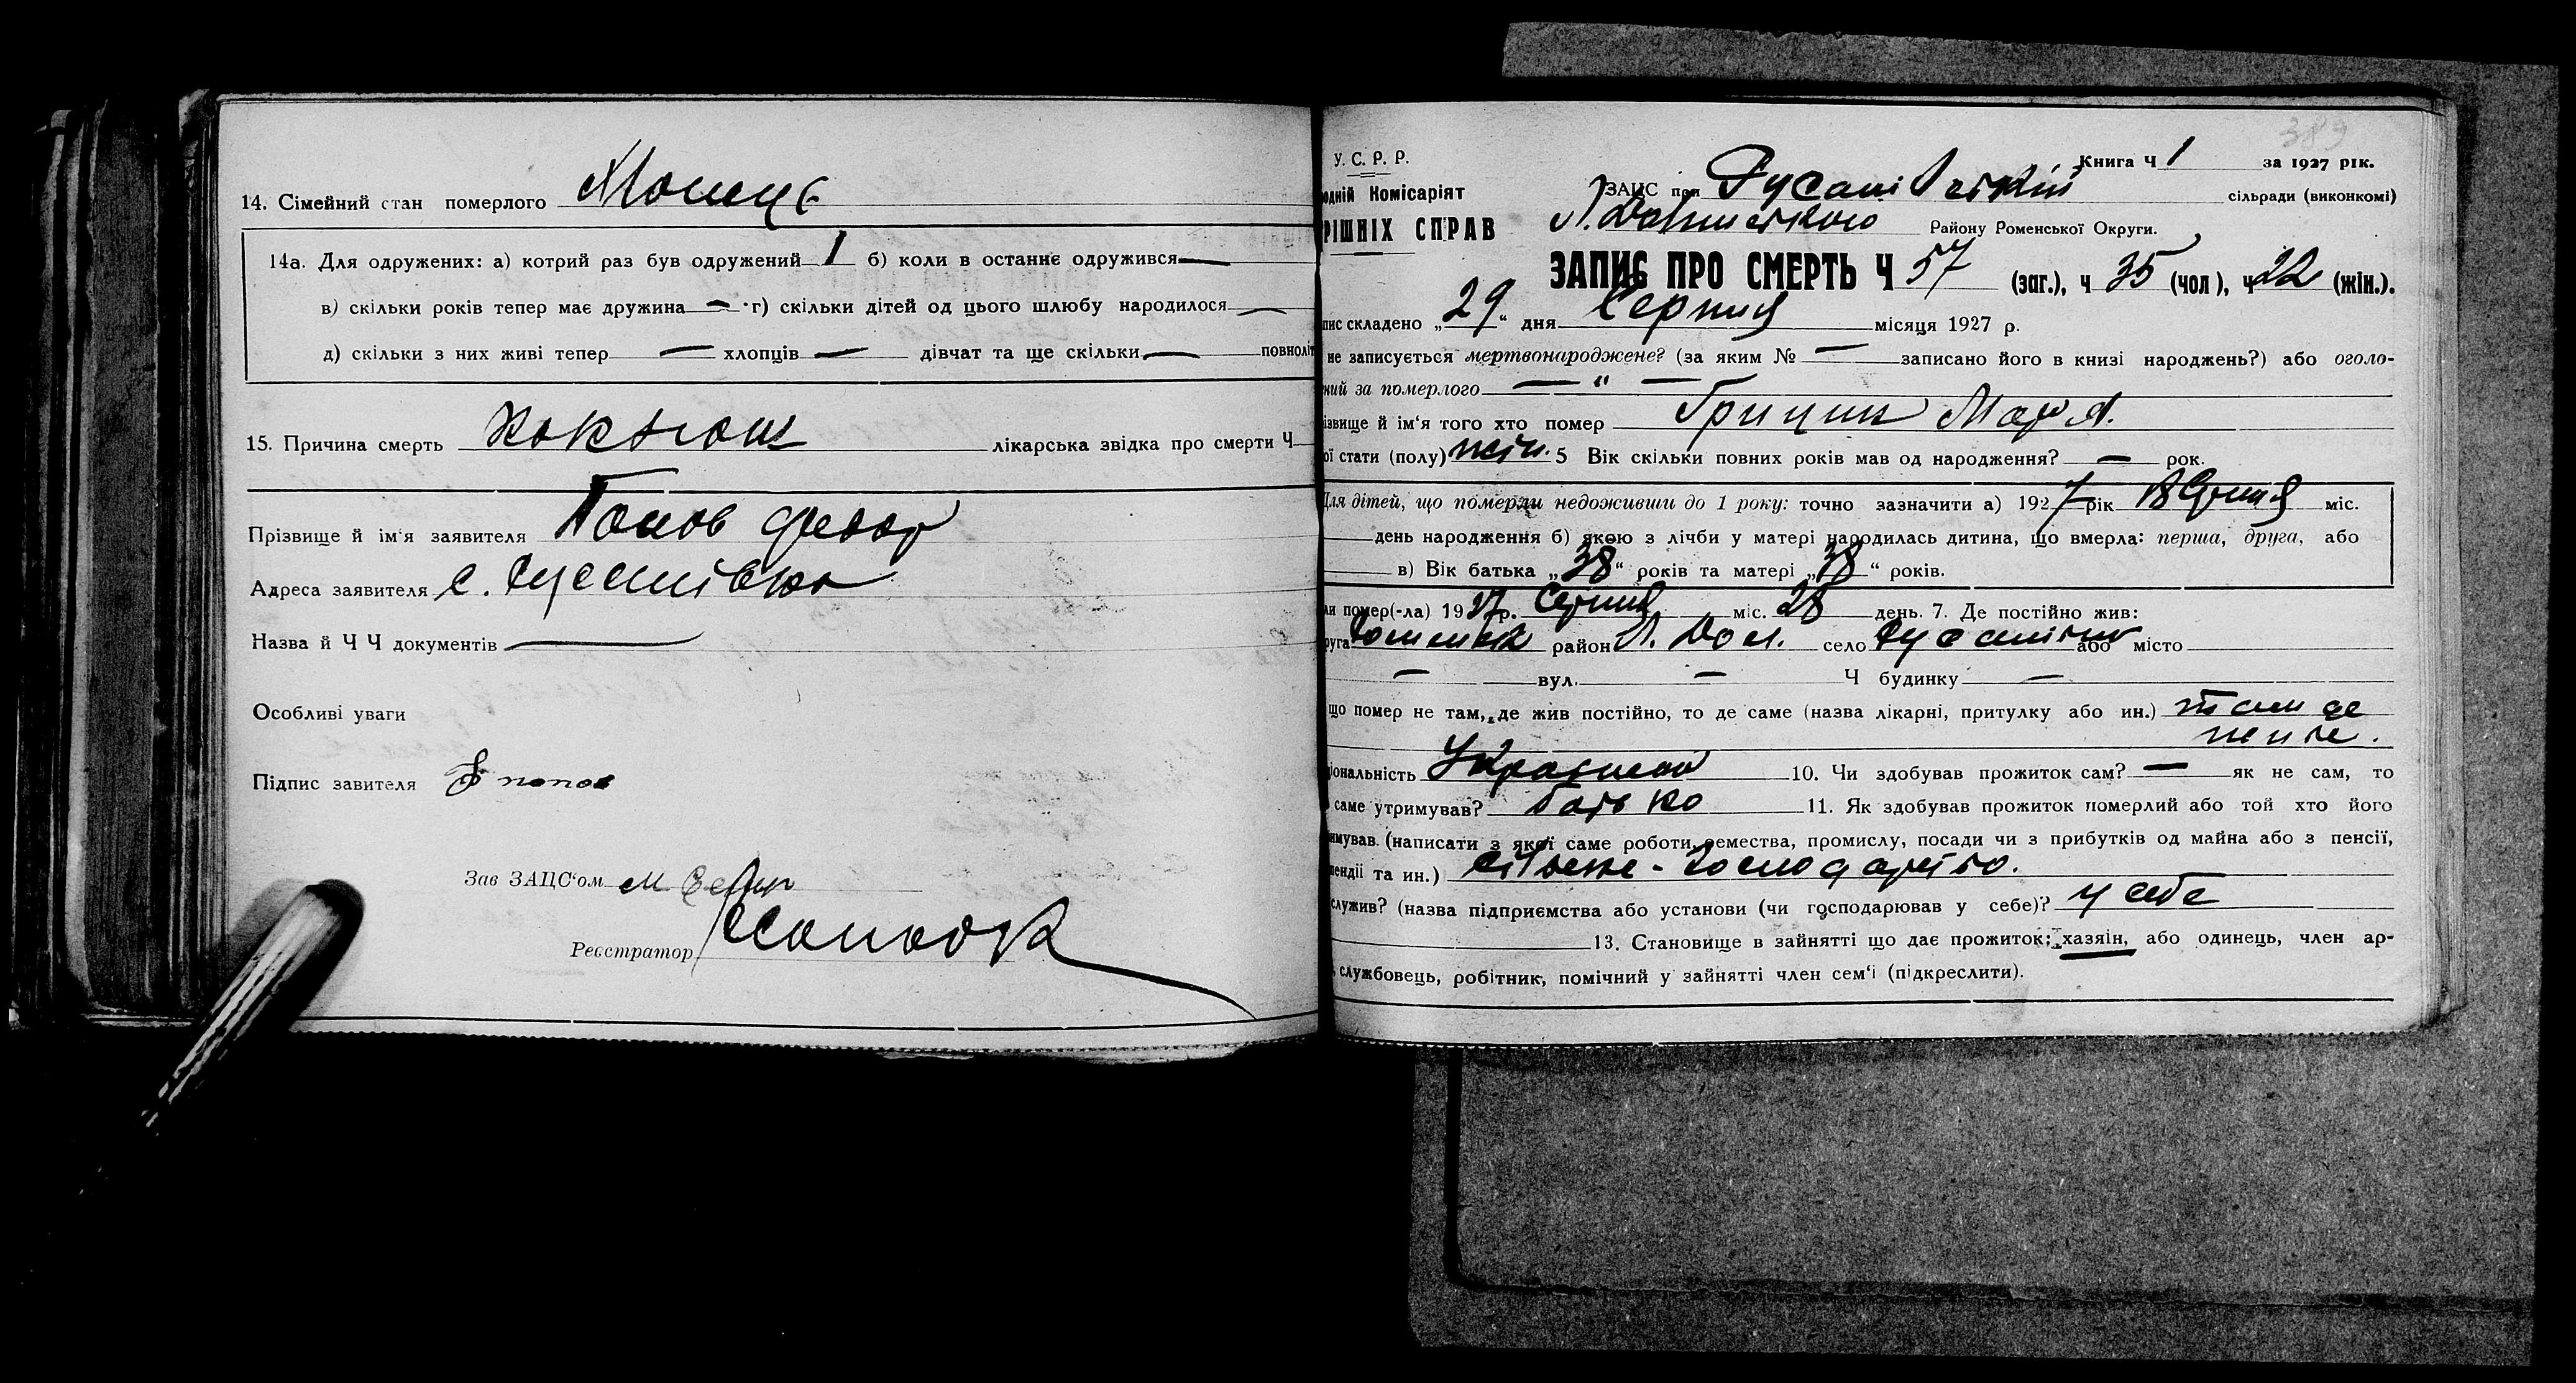 14. Сімейний стан померлого
14а. Для одружених: а) котрий раз був одружений 1 б) коли в останнє одружився —
в) скільки років тепер має дружина — г) скільки дітей од цього шлюбу народилося —
д) скільки з них живі тепер — хлопців — дівчат та ще скільки — повноліт
15. Причина смерть Коклюш лікарська звідка про смерти Ч
Прізвище й ім'я заявителя Попов Федор
Адреса заявителя с.
Назва й Ч Ч документів —
Особливі уваги
Підпис завителя Ф попов
Зав ЗАЦС'ом
Реєстратор
389
У. С. Р. Р.
Книга Ч 1 за 1927 рік.
одній Комісаріят
ЗАЦС при сільради (виконкомі)
РІШНІХ СПРАВ
Району Роменської Округи.
ЗАПИС ПРО СМЕРТЬ Ч 57 (заг.), ч 35 (чол), ч 22 (жін.).
пис складено „29“ дня Серпня місяця 1927 р.
не записується мертвонароджене? (за яким № — записано його в книзі народжень?) або оголо-
ний за померлого — " —
ізвище й ім'я того хто помер Грицик Мар
ої стати (полу) жін. 5 Вік скільки повних років мав од народження? — рок.
Для дітей, що померли недоживши до 1 року: точно зазначити а) 1927 рік міс.
день народження б) якою з лічби у матері народилась дитина, що вмерла: перша, друга, або
в) Вік батька „38“ років та матері „38“ років.
ли помер(-ла) 1927 р. Серпня міс. 28 день. 7. Де постійно жив:
руга район Л. Дол. село або місто
— вул. — Ч будинку —
що помер не там, де жив постійно, то де саме (назва лікарні, притулку або ин.) там де
іональність 10. Чи здобував прожиток сам? — як не сам, то
саме утримував? батько 11. Як здобував прожиток померлий або той хто його
имував. (написати з якої саме роботи, ремества, промислу, посади чи з прибутків од майна або з пенсії,
пендії та ин.) сільське-господарство.
служив? (назва підприємства або установи (чи господарював у себе)? у себе
13. Становище в зайнятті що дає прожиток: хазяїн, або одинець, член ар-
, службовець, робітник, помічний у зайнятті член сем'ї (підкреслити).